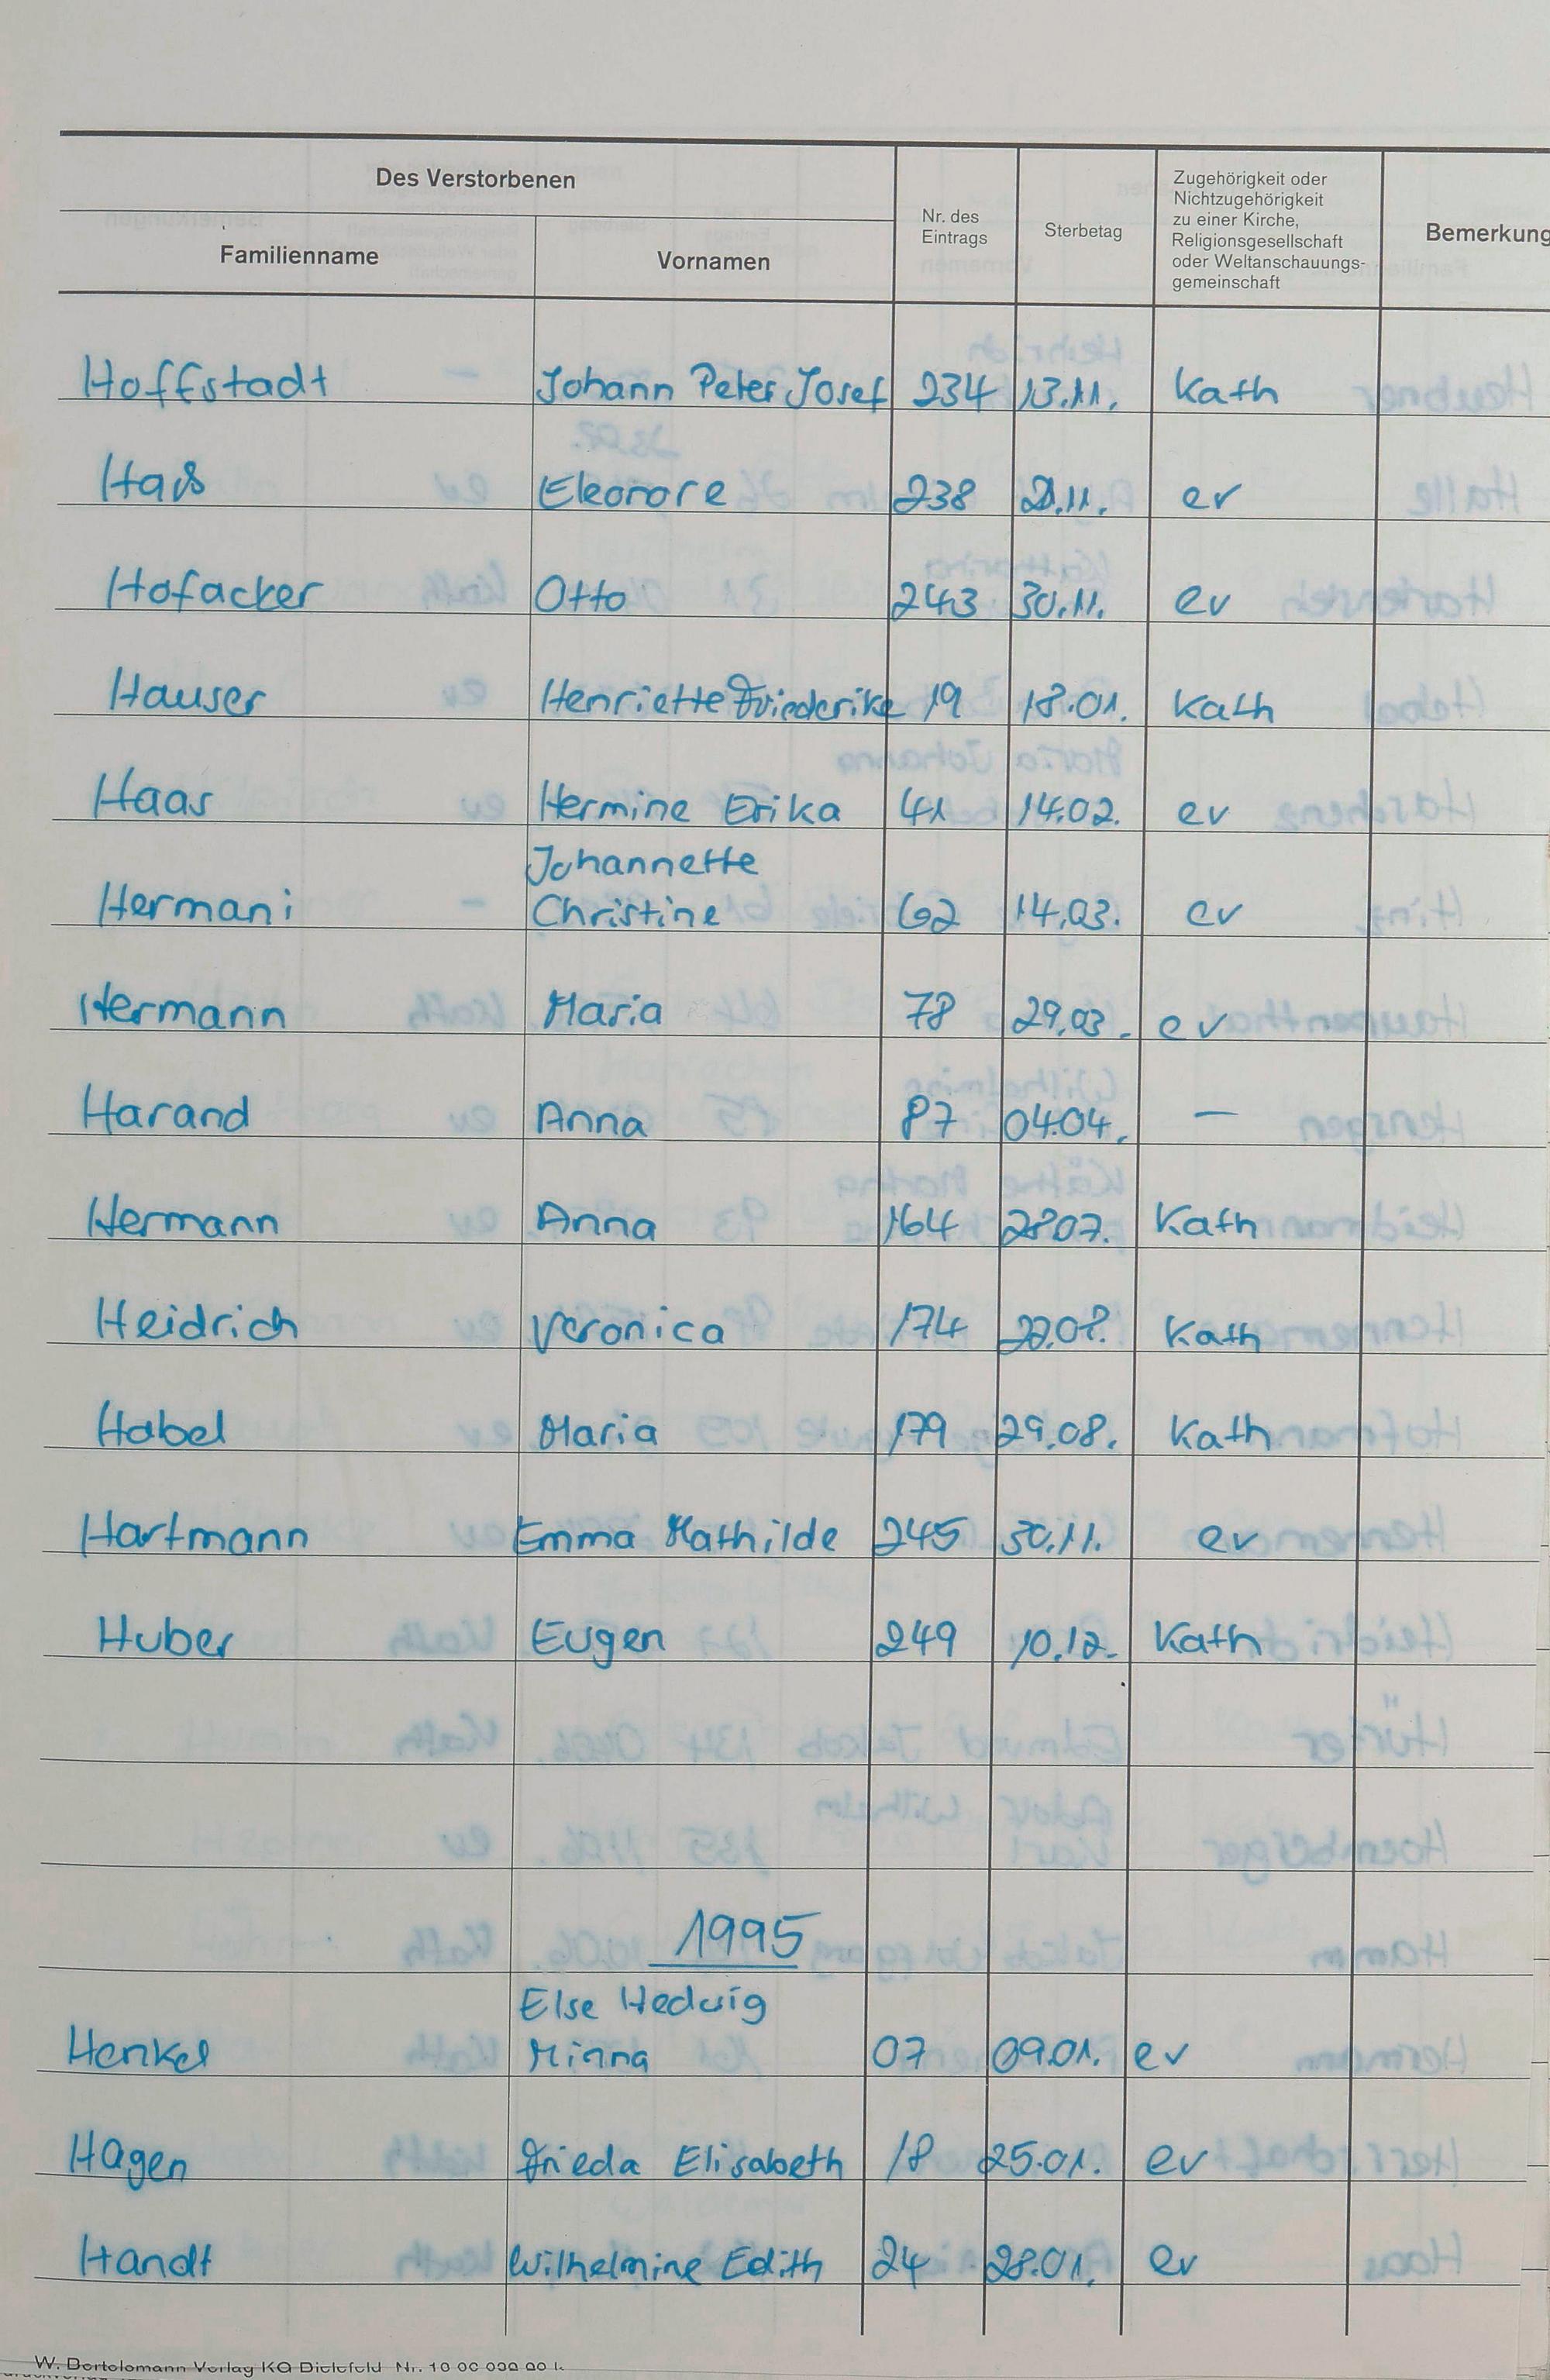 Des Verstorbenen
Familienname
Vornamen
Nr. des
Eintrags
Sterbetag
Zugehörigkeit oder
Nichtzugehörigkeit
zu einer Kirche,
Religionsgesellschaft
oder Weltanschauungs-
gemeinschaft
Bemerkung
Hoffstadt Johann Peter Josef 234 13.11. Kath
Haß Eleonore 238 21.11. ev
Hofacker Otto 243 30.11. ev
Hauser Henriette Friederike 19 18.01. Kath
Haas Hermine Erika 41 14.02. ev
Johannette
Hermani Christine 62 14.03. ev
Hermann Maria 78 29.03. ev
Harand Anna 87 04.04. —
Hermann Anna 164 28.07. Kath
Heidrich Veronica 174 22.08. Kath
Habel Maria 179 29.08. Kath
Hartmann Emma Mathilde 245 30.11. ev
Huber Eugen 249 10.12. Kath
1995
Else Hedwig
Henkel Minna 07 09.01. ev
Hagen Frieda Elisabeth 18 25.01. ev
Handt Wilhelmine Edith 24 28.01. ev